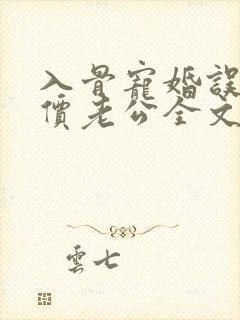 入骨寵婚誤
價老公全文
雲七